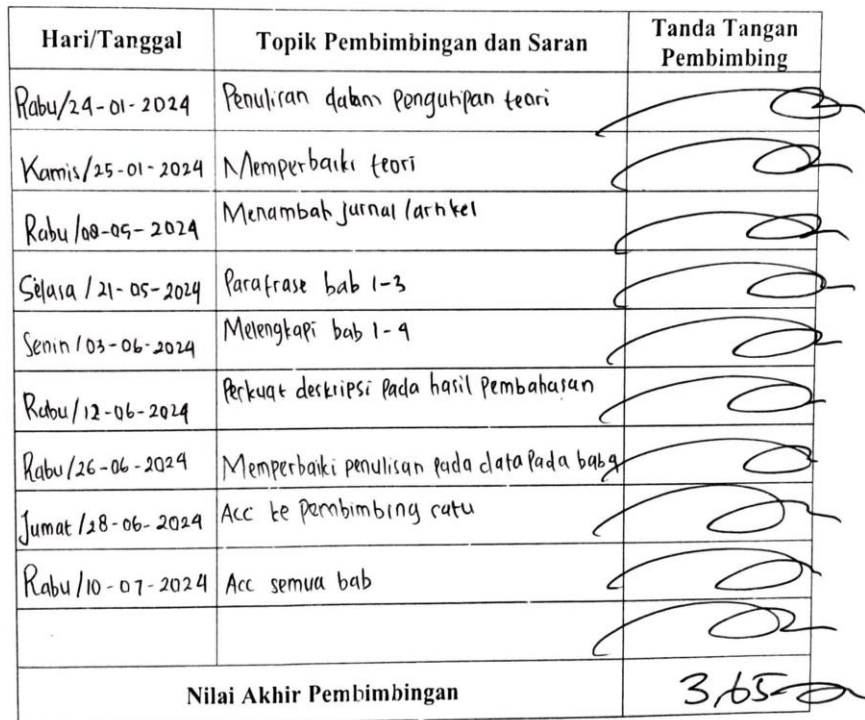 Hari/Tanggal Topik Pembimbingan dan Saran Tanda Tangan
Pembimbing
Rabu/24-01-2024 Penulisan dalam pengutipan teori
Kamis/25-01-2024 Memperbaiki teori
Rabu/08-05-2024 Menambah jurnal/artikel
Selasa/21-05-2024 Parafrase bab 1-3
Senin/03-06-2024 Melengkapi bab 1-4
Rabu/12-06-2024 Perkuat deskripsi pada hasil pembahasan
Rabu/26-06-2024 Memperbaiki penulisan pada data pada bab 4
Jumat/28-06-2024 Acc ke pembimbing satu
Rabu/10-07-2024 Acc semua bab
Nilai Akhir Pembimbingan 3,65